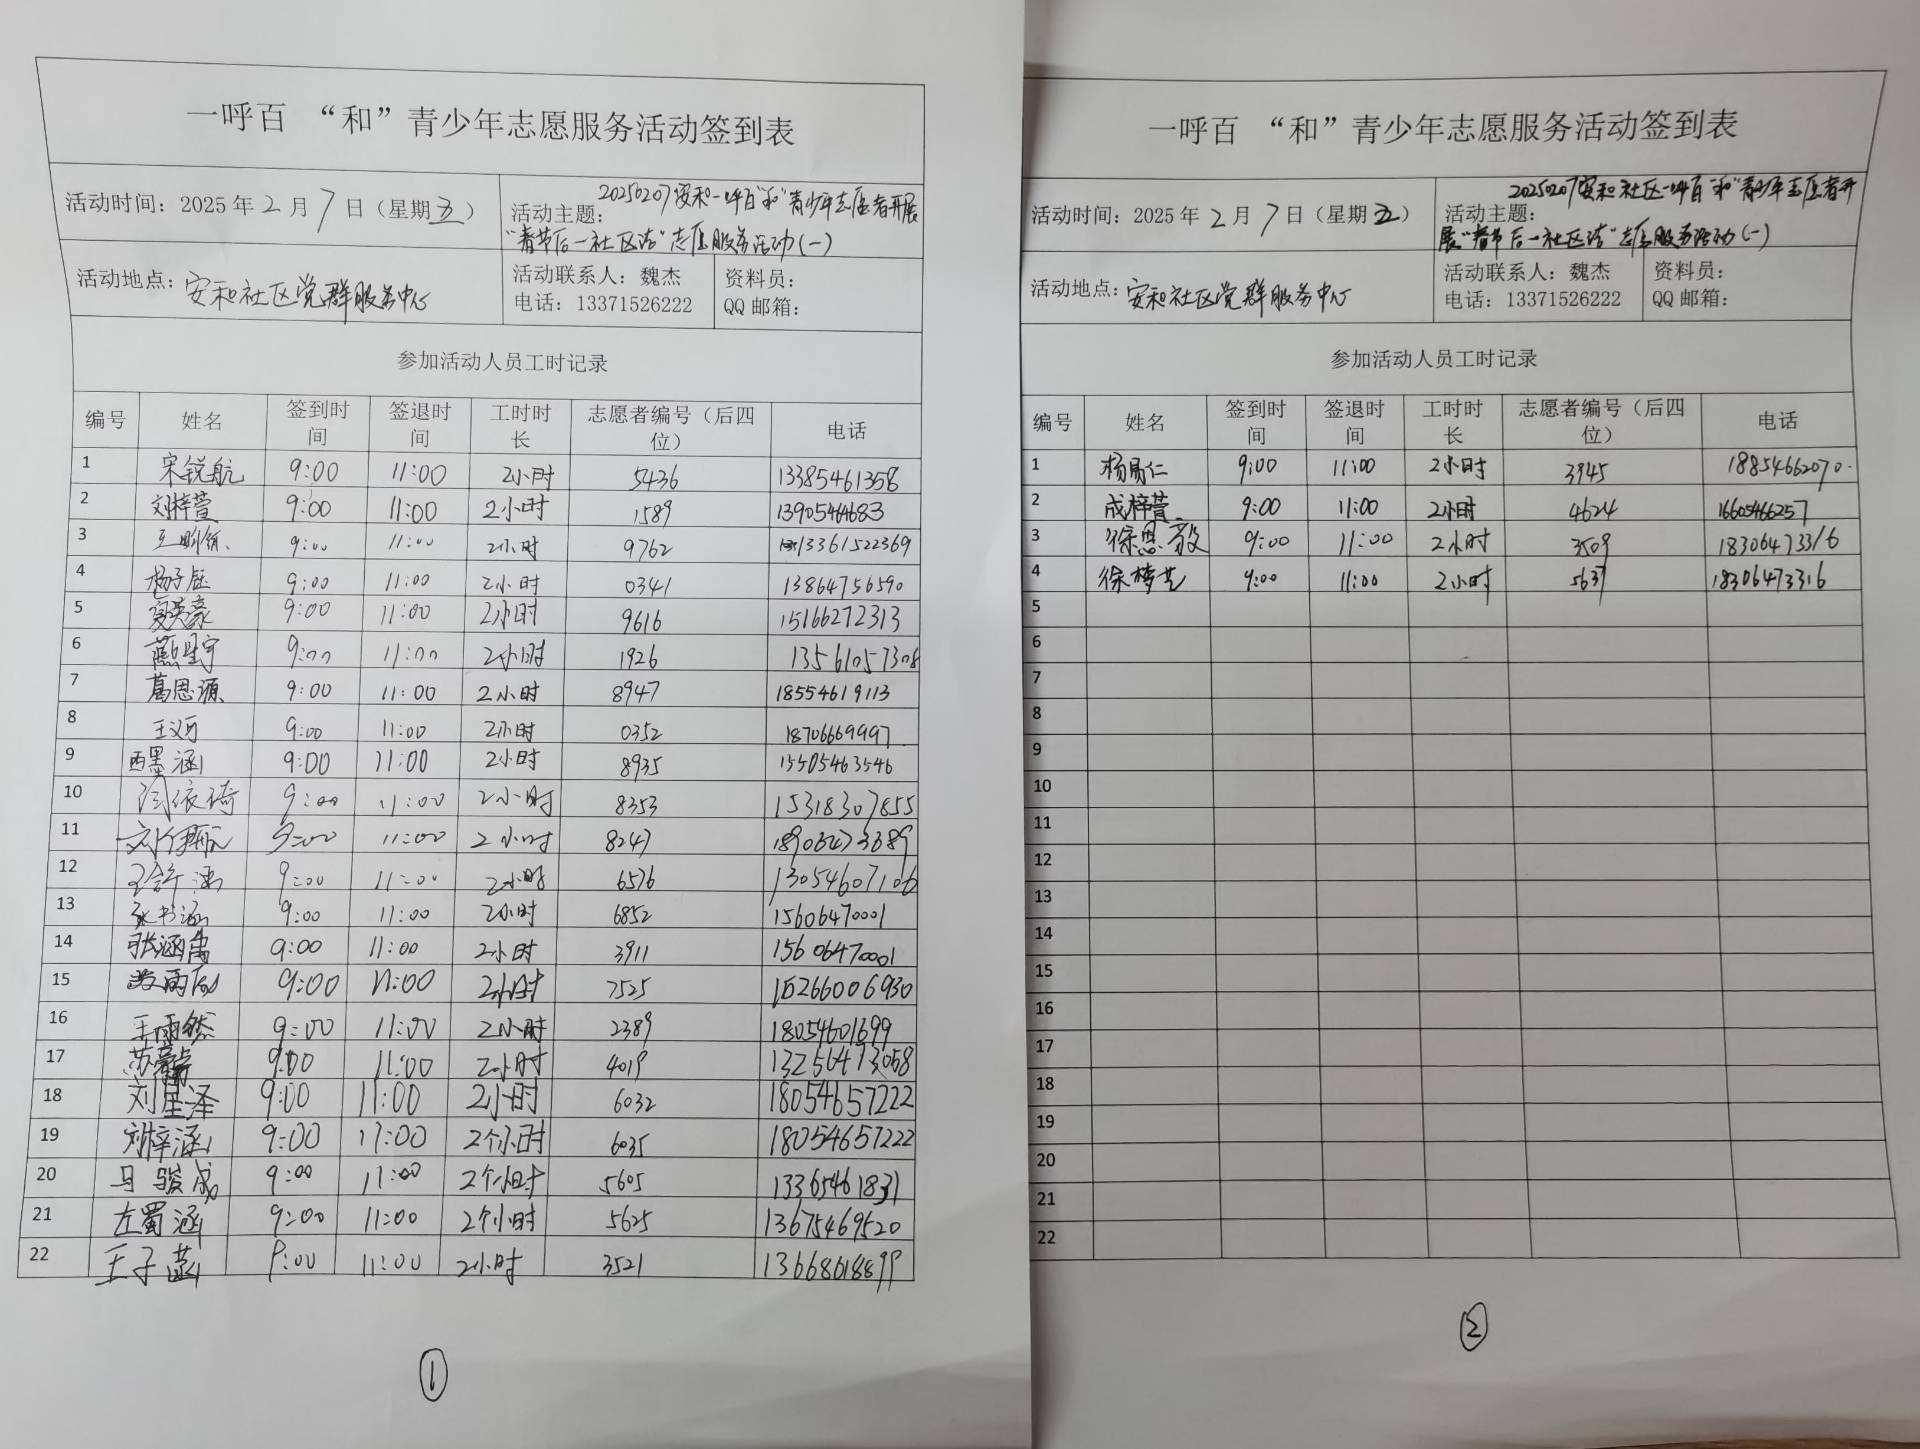 一呼百 “和”青少年志愿服务活动签到表
活动时间：2025年2月7日（星期五）
活动主题：
20250207安和一呼百“和”青少年志愿者开展
“春节后一社区洁”志愿服务活动(一)
活动地点：安和社区党群服务中心
活动联系人：魏杰
电话：13371526222
资料员：
QQ邮箱：
参加活动人员工时记录
编号 姓名 签到时间 签退时间 工时时长 志愿者编号（后四位） 电话
1 宋锐航 9:00 11:00 2小时 5436 13385461358
2 刘梓萱 9:00 11:00 2小时 1589 13905464683
3 9:00 11:00 2小时 9762 13361522369
4 杨子钰 9:00 11:00 2小时 0341 13864756590
5 夏英豪 9:00 11:00 2小时 9616 15166272313
6 9:00 11:00 2小时 1926 13561057308
7 葛恩源 9:00 11:00 2小时 8947 18554619113
8 王义可 9:00 11:00 2小时 0352 18706669997
9 西墨涵 9:00 11:00 2小时 8935 13505463546
10 闫依琦 9:00 11:00 2小时 8353 15318307855
11 9:00 11:00 2小时 8247 18906473689
12 9:00 11:00 2小时 6576 13054607106
13 张书涵 9:00 11:00 2小时 6852 15606470001
14 张涵禹 9:00 11:00 2小时 3911 15606470001
15 9:00 11:00 2小时 7525 15266006930
16 王雨然 9:00 11:00 2小时 2389 18054601699
17 9:00 11:00 2小时 4019 13256473058
18 刘星泽 9:00 11:00 2小时 6032 18054657222
19 刘梓涵 9:00 11:00 2个小时 6035 18054657222
20 马骏成 9:00 11:00 2个小时 5605 13365461831
21 左蜀涵 9:00 11:00 2个小时 5625 13675469520
22 王子菡 9:00 11:00 2小时 3521 13668618899
①
一呼百 “和”青少年志愿服务活动签到表
活动时间：2025年2月7日（星期五）
活动主题：
20250207安和社区一呼百“和”青少年志愿者开
展“春节后一社区洁”志愿服务活动(一)
活动地点：安和社区党群服务中心
活动联系人：魏杰
电话：13371526222
资料员：
QQ邮箱：
参加活动人员工时记录
编号 姓名 签到时间 签退时间 工时时长 志愿者编号（后四位） 电话
1 杨易仁 9:00 11:00 2小时 3945 18854662070
2 成梓萱 9:00 11:00 2小时 4624 16605466257
3 徐恩毅 9:00 11:00 2小时 3509 18306473316
4 徐梦艺 9:00 11:00 2小时 5637 18306473316
5
6
7
8
9
10
11
12
13
14
15
16
17
18
19
20
21
22
②